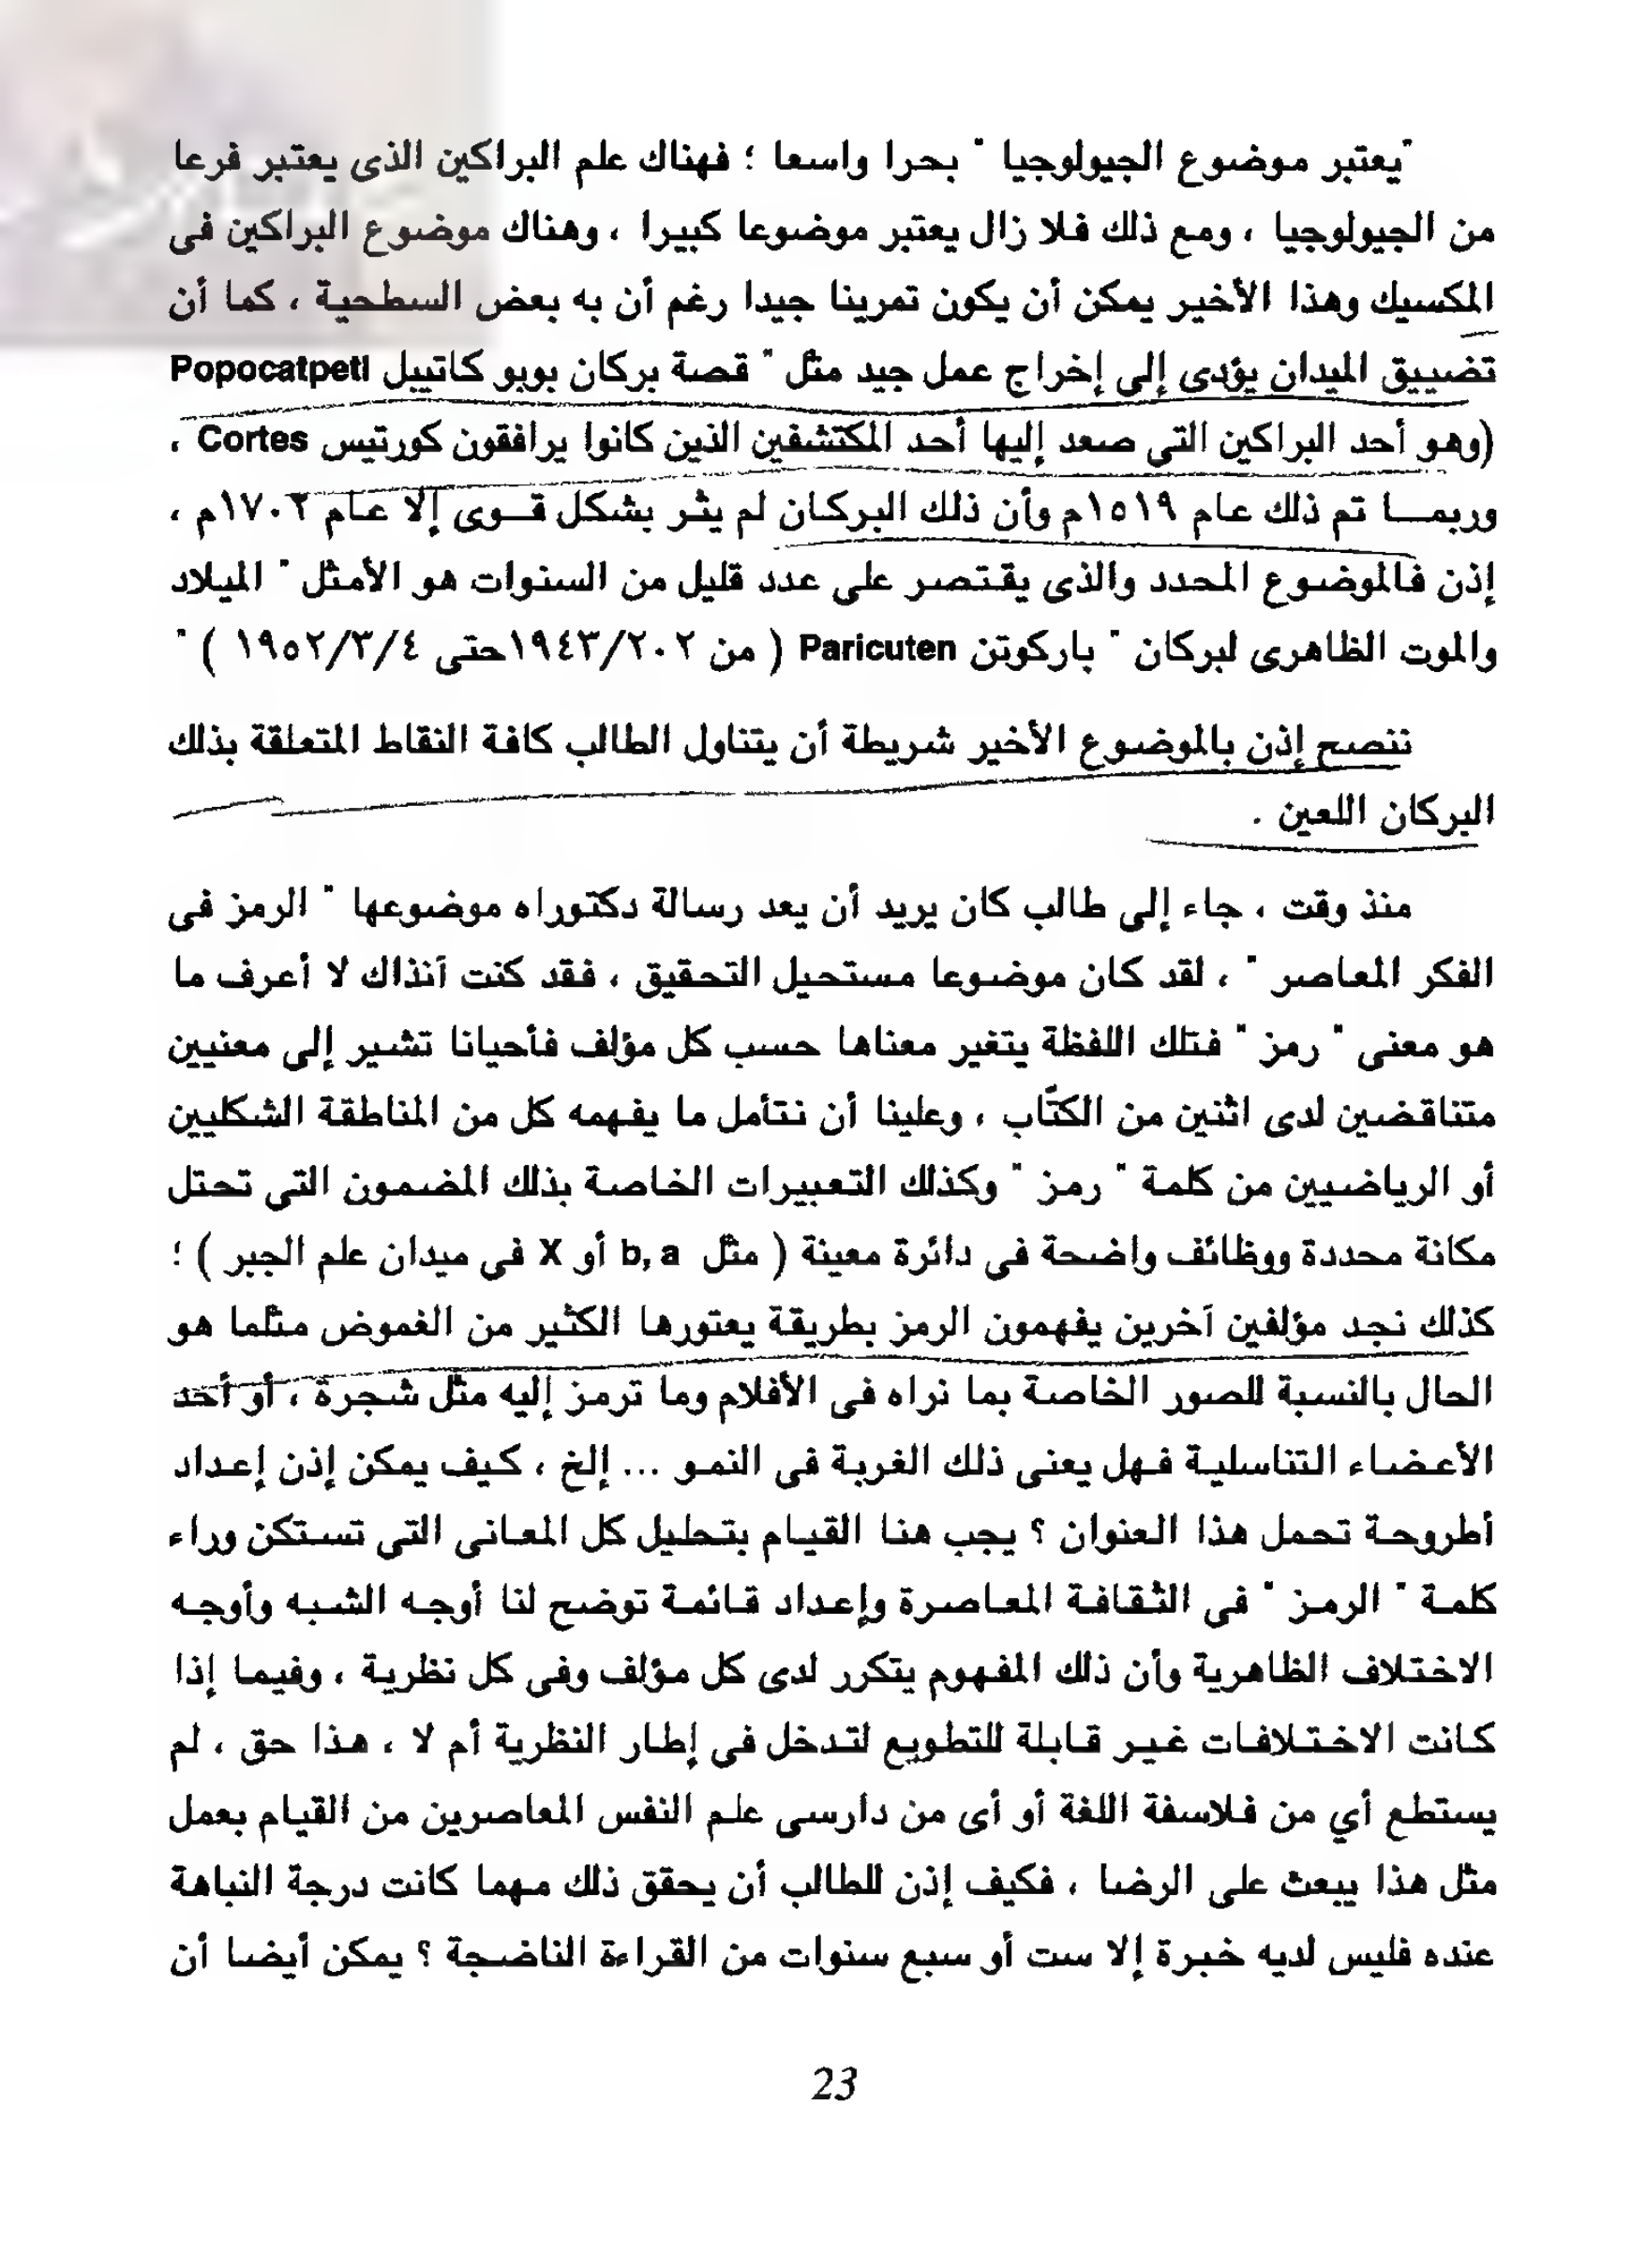 "يعتبر موضوع الجيولوجيا " بحرا واسعا ؛ فهناك علم البراكين الذى يعتبر فرعا
من الجيولوجيا ، ومع ذلك فلا زال يعتبر موضوعا كبيرا ، وهناك موضوع البراكين فى
المكسيك وهذا الأخير يمكن أن يكون تمرينا جيدا رغم أن به بعض السطحية ، كما أن
تضييق الميدان يؤدى إلى إخراج عمل جيد مثل " قصة بركان بوبو كاتبيل Popocatpetl
(وهو أحد البراكين التي صعد إليها أحد المكتشفين الذين كانوا يرافقون كورتيس Cortes ،
وربما تم ذلك عام ١٥١٩م وأن ذلك البركان لم يثر بشكل قوى إلا عام ١٧٠٢م ،
إذن فالموضوع المحدد والذى يقتصر على عدد قليل من السنوات هو الأمثل " الميلاد
والموت الظاهرى لبركان " باركوتن Paricuten ( من ١٩٤٣/٢٠٢حتى ١٩٥٢/٣/٤ ) "
ننصح إذن بالموضوع الأخير شريطة أن يتناول الطالب كافة النقاط المتعلقة بذلك
البركان اللعين .
منذ وقت ، جاء إلى طالب كان يريد أن يعد رسالة دكتوراه موضوعها " الرمز فى
الفكر المعاصر " ، لقد كان موضوعا مستحيل التحقيق ، فقد كنت آنذاك لا أعرف ما
هو معنى " رمز " فتلك اللفظة يتغير معناها حسب كل مؤلف فأحيانا تشير إلى معنيين
متناقضين لدى اثنين من الكتَّاب ، وعلينا أن نتأمل ما يفهمه كل من المناطقة الشكليين
أو الرياضيين من كلمة " رمز " وكذلك التعبيرات الخاصة بذلك المضمون التى تحتل
مكانة محددة ووظائف واضحة فى دائرة معينة ( مثل b, a أو X فى ميدان علم الجبر ) ؛
كذلك نجد مؤلفين آخرين يفهمون الرمز بطريقة يعتورها الكثير من الغموض مثلما هو
الحال بالنسبة للصور الخاصة بما نراه فى الأفلام وما ترمز إليه مثل شجرة ، أو أحد
الأعضاء التناسلية فهل يعنى ذلك الغربة فى النمو ... إلخ ، كيف يمكن إذن إعداد
أطروحة تحمل هذا العنوان ؟ يجب هنا القيام بتحليل كل المعانى التى تستكن وراء
كلمة " الرمز " فى الثقافة المعاصرة وإعداد قائمة توضح لنا أوجه الشبه وأوجه
الاختلاف الظاهرية وأن ذلك المفهوم يتكرر لدى كل مؤلف وفى كل نظرية ، وفيما إذا
كانت الاختلافات غير قابلة للتطويع لتدخل فى إطار النظرية أم لا ، هذا حق ، لم
يستطع أي من فلاسفة اللغة أو أى من دارسى علم النفس المعاصرين من القيام بعمل
مثل هذا يبعث على الرضا ، فكيف إذن للطالب أن يحقق ذلك مهما كانت درجة النباهة
عنده فليس لديه خبرة إلا ست أو سبع سنوات من القراءة الناضجة ؟ يمكن أيضا أن
23